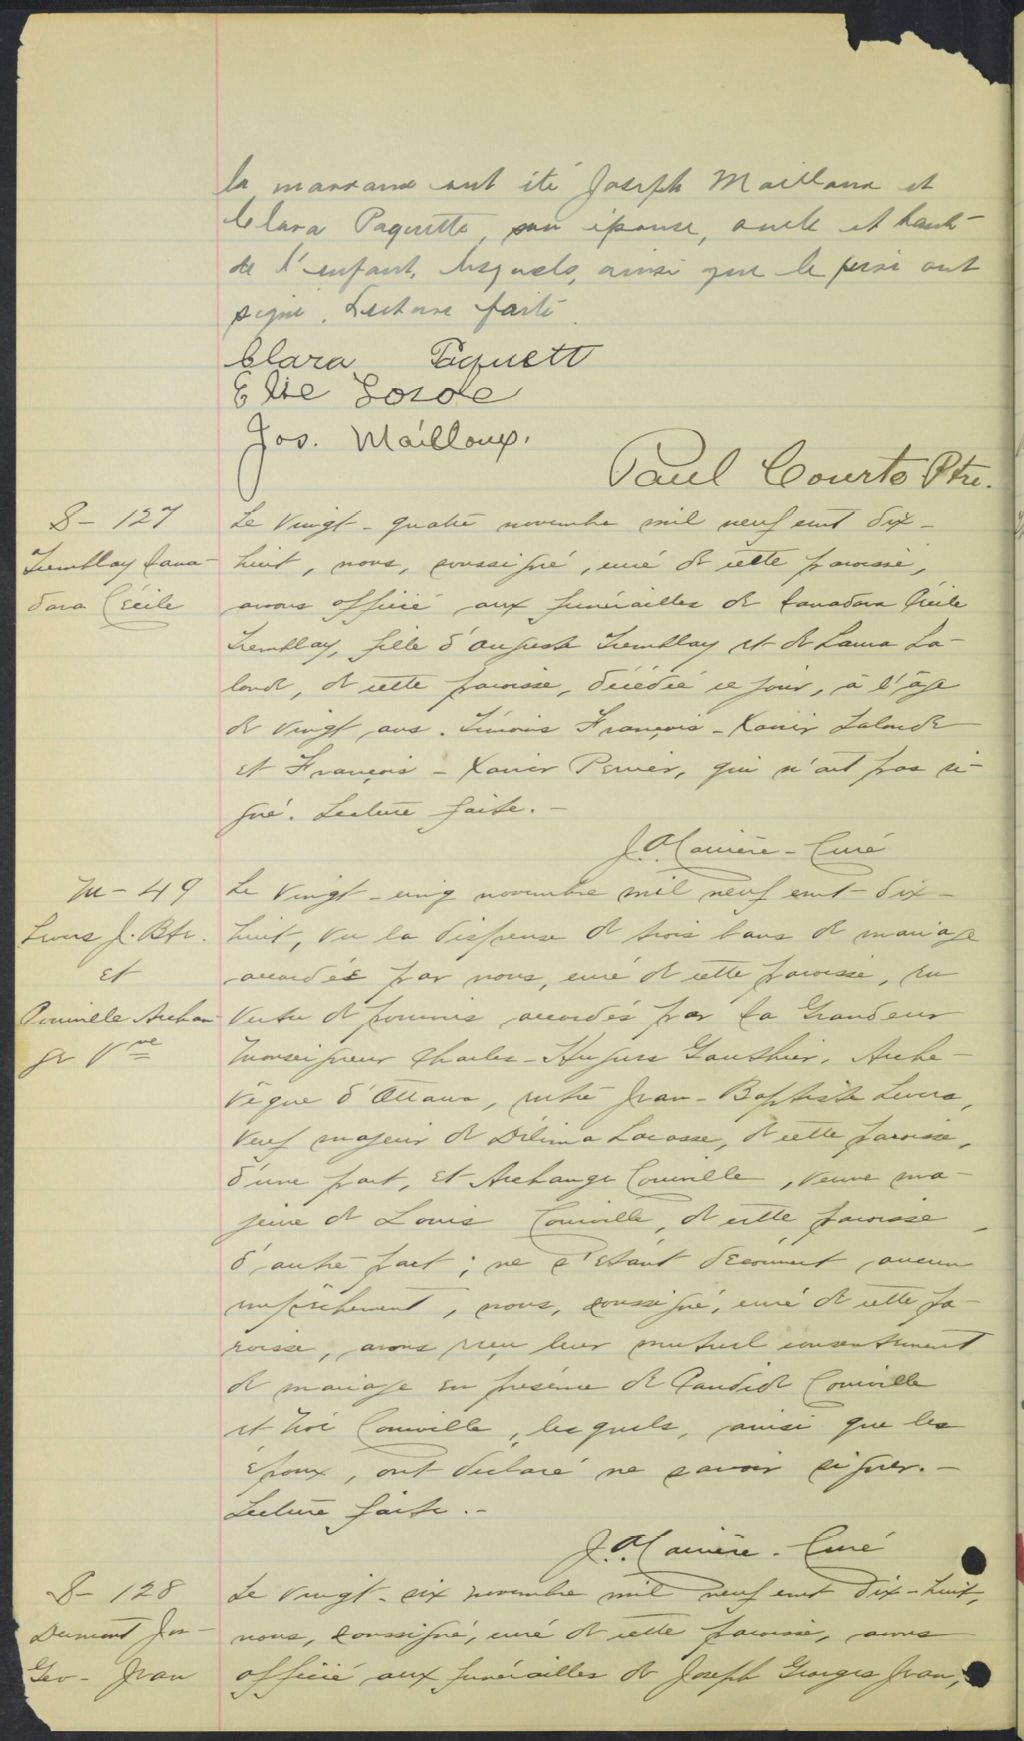 la marraine ont été Joseph Mailloux et
Clara Paquette, son épouse, oncle et tante
de l'enfant, lesquels, ainsi que le père ont
signé. Lecture faite.
Clara Paquett
Elie
Jos. Mailloux.
Paul Courto Ptre.
S - 127
Tremblay Cana-
dora Cécile
Le vingt-quatre novembre mil neuf cent dix-
huit, nous, soussigné, curé de cette paroisse,
avons officié aux funérailles de Canadora Cécile
Tremblay, fille d'Auguste Tremblay et de Laura La-
londe, de cette paroisse, décédée ce jour, à l'âge
de vingt ans. Témoins François-Xavier Lalonde
et François-Xavier Perrier, qui n'ont pas si-
gné. Lecture faite.-
J. A. Carrière - Curé
M - 49
J. Bte.
et
Couville Archan-
ge Vve
Le vingt-cinq novembre mil neuf cent dix-
huit, vu la dispense de trois bans de mariage
accordée par nous, curé de cette paroisse, en
vertu de pouvoirs accordés par Sa Grandeur
Monseigneur Charles-Hugues Gauthier, Arche-
vêque d'Ottawa, entre Jean-Baptiste
veuf majeur de Délima Lacasse, de cette paroisse,
d'une part, et Archange Couville, veuve ma-
jeure de Louis Couville, de cette paroisse,
d'autre part; ne s'étant découvert aucun
empêchement, nous, soussigné, curé de cette pa-
roisse, avons reçu leur mutuel consentement
de mariage en présence de Candide Couville
et Noé Couville, lesquels, ainsi que les
époux, ont déclaré ne savoir signer.-
Lecture faite.-
J. A. Carrière - Curé
S - 128
Dumont Jos-
Geo - Jean
Le vingt-six novembre mil neuf cent dix-huit,
nous, soussigné, curé de cette paroisse, avons
officié aux funérailles de Joseph Georges Jean,